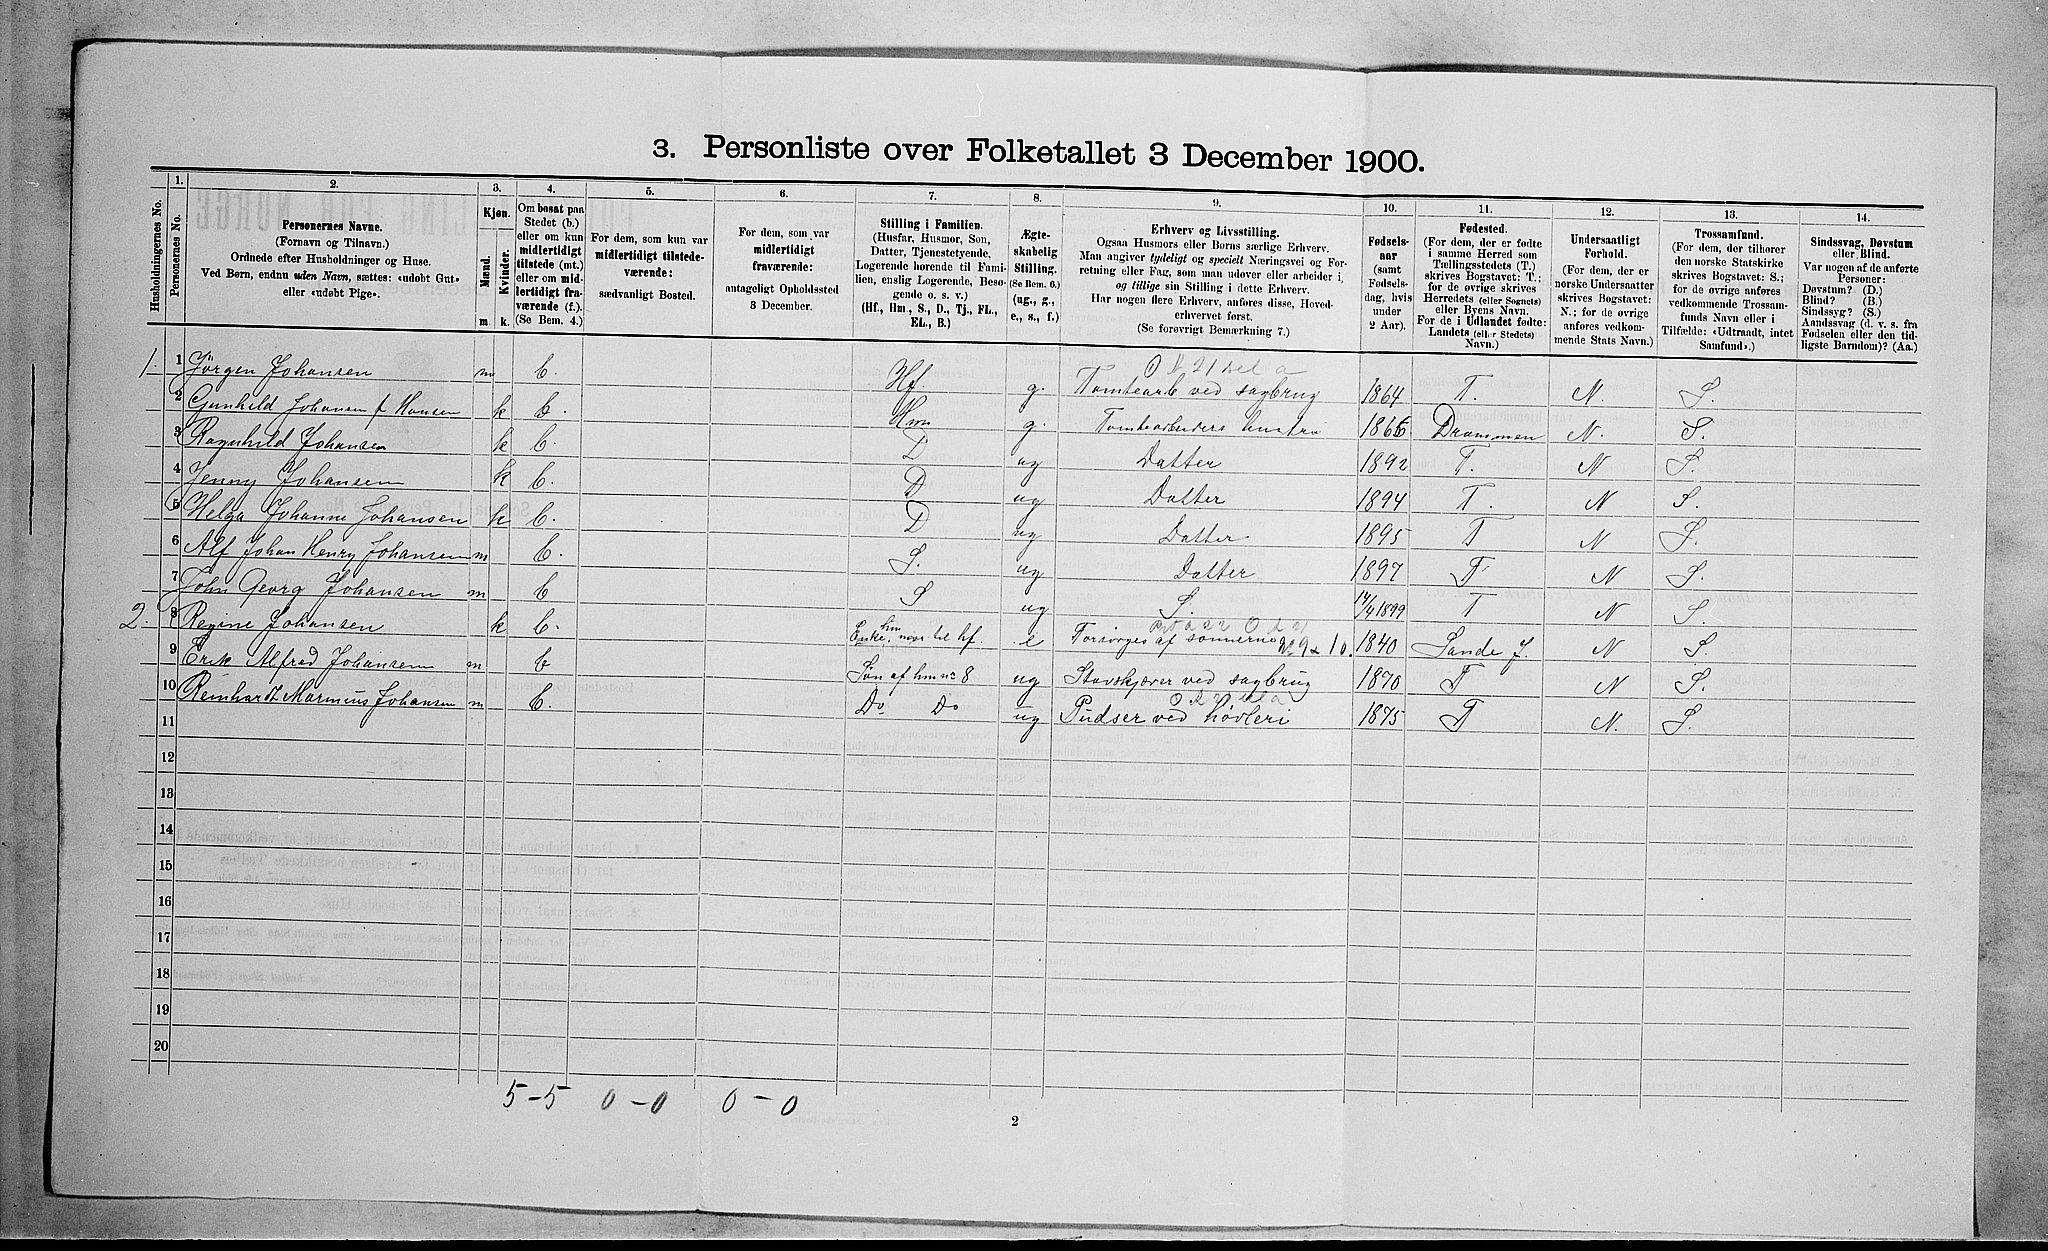 3. Personliste over Folketallet 3 December 1900.
Husholdningernes No.
1.
Personernes No.
2.
Personernes Navne.
(Fornavn og Tilnavn.)
Ordnede efter Husholdninger og Huse.
Ved Børn, endnu uden Navn, sættes: «udøbt Gut»
eller «udøbt Pige».
3.
Kjøn.
Mænd.
Kvinder.
m
k.
4.
Om bosat paa
Stedet (b.)
eller om kun
midlertidigt
tilstede (mt.)
eller om mid-
lertidigt fra-
værende (f.).
(Se Bem. 4.)
5.
For dem, som kun var
midlertidigt tilstede-
værende:
sædvanligt Bosted.
6.
For dem, som var
midlertidigt
fraværende:
antageligt Opholdssted
3 December.
7.
Stilling i Familien.
(Husfar, Husmor, Søn,
Datter, Tjenestetyende,
Logerende hørende til Fami-
lien, enslig Logerende, Besø-
gende o. s. v.)
(Hf., Hm., S., D., Tj., FL.,
EL., B.)
8.
Ægte-
skabelig
Stilling.
(Se Bem. 6.)
(ug., g.,
e., s., f.)
9.
Erhverv og Livsstilling.
Ogsaa Husmors eller Børns særlige Erhverv.
Man angiver tydeligt og specielt Næringsvei og For-
retning eller Fag, som man udøver eller arbeider i,
og tillige sin Stilling i dette Erhverv.
Har nogen flere Erhverv, anføres disse, Hoved-
erhvervet først.
(Se forøvrigt Bemærkning 7.)
10.
Fødsels-
aar
(samt
Fødsels-
dag, hvis
under
2 Aar).
11.
Fødested.
(For dem, der er fødte
i samme Herred som
Tællingsstedets (T.)
skrives Bogstavet: T.;
for de øvrige skrives
Herredets (eller Sognets)
eller Byens Navn.
For de i Udlandet fødte:
Landets (eller Stedets)
Navn.)
12.
Undersaatligt
Forhold.
(For dem, der er
norske Undersaatter
skrives Bogstavet:
N.; for de øvrige
anføres vedkom-
mende Stats Navn.)
13.
Trossamfund.
(For dem, der tilhører
den norske Statskirke
skrives Bogstavet: S.;
for de øvrige anføres
vedkommende Trossam-
funds Navn eller i
Tilfælde: «Udtraadt, intet
Samfund».)
14.
Sindssvag, Døvstum
eller Blind.
Var nogen af de anførte
Personer:
Døvstum? (D.)
Blind? (B.)
Sindssyg? (S.)
Aandssvag (d. v. s. fra
Fødselen eller den tid-
ligste Barndom)? (Aa.)
1. 1 Jörgen Johansen m b. Hf. g. Tomtearb ved sagbrug 1864 T. N. S.
2 Gunhild Johansen f Hansen k b. Hm g. Tomtearbeiders hustru 1866. Drammen N. S.
3 Ragnhild Johansen k b. D ug Datter 1892 T. N S.
4 Jenny Johansen k b. D ug Datter 1894 T. N S.
5 Helga Johanne Johansen k b. D ug Datter 1895 T N S.
6 Alf Johan Henry Johansen m b. S. ug Datter 1897 T N S.
7 John Georg Johansen m b S ug S. 1899 T N S.
2. 8 Regine Johansen k b. Enke, hm mor til hf. e Forsørges af sønnerne No 9 + 10. 1840 Sande J. N S.
9 Erik Alfred Johansen m b Søn af hm no 8 ug Stavskjærer ved sagbrug 1870 T N S.
10 Reinhardt Marinius Johansen m b. Do Do ug Pudser ved høvleri 1875 T N. S.
11
12
13
14
15
16
17
18
19
20
5-5 0-0 0-0
2